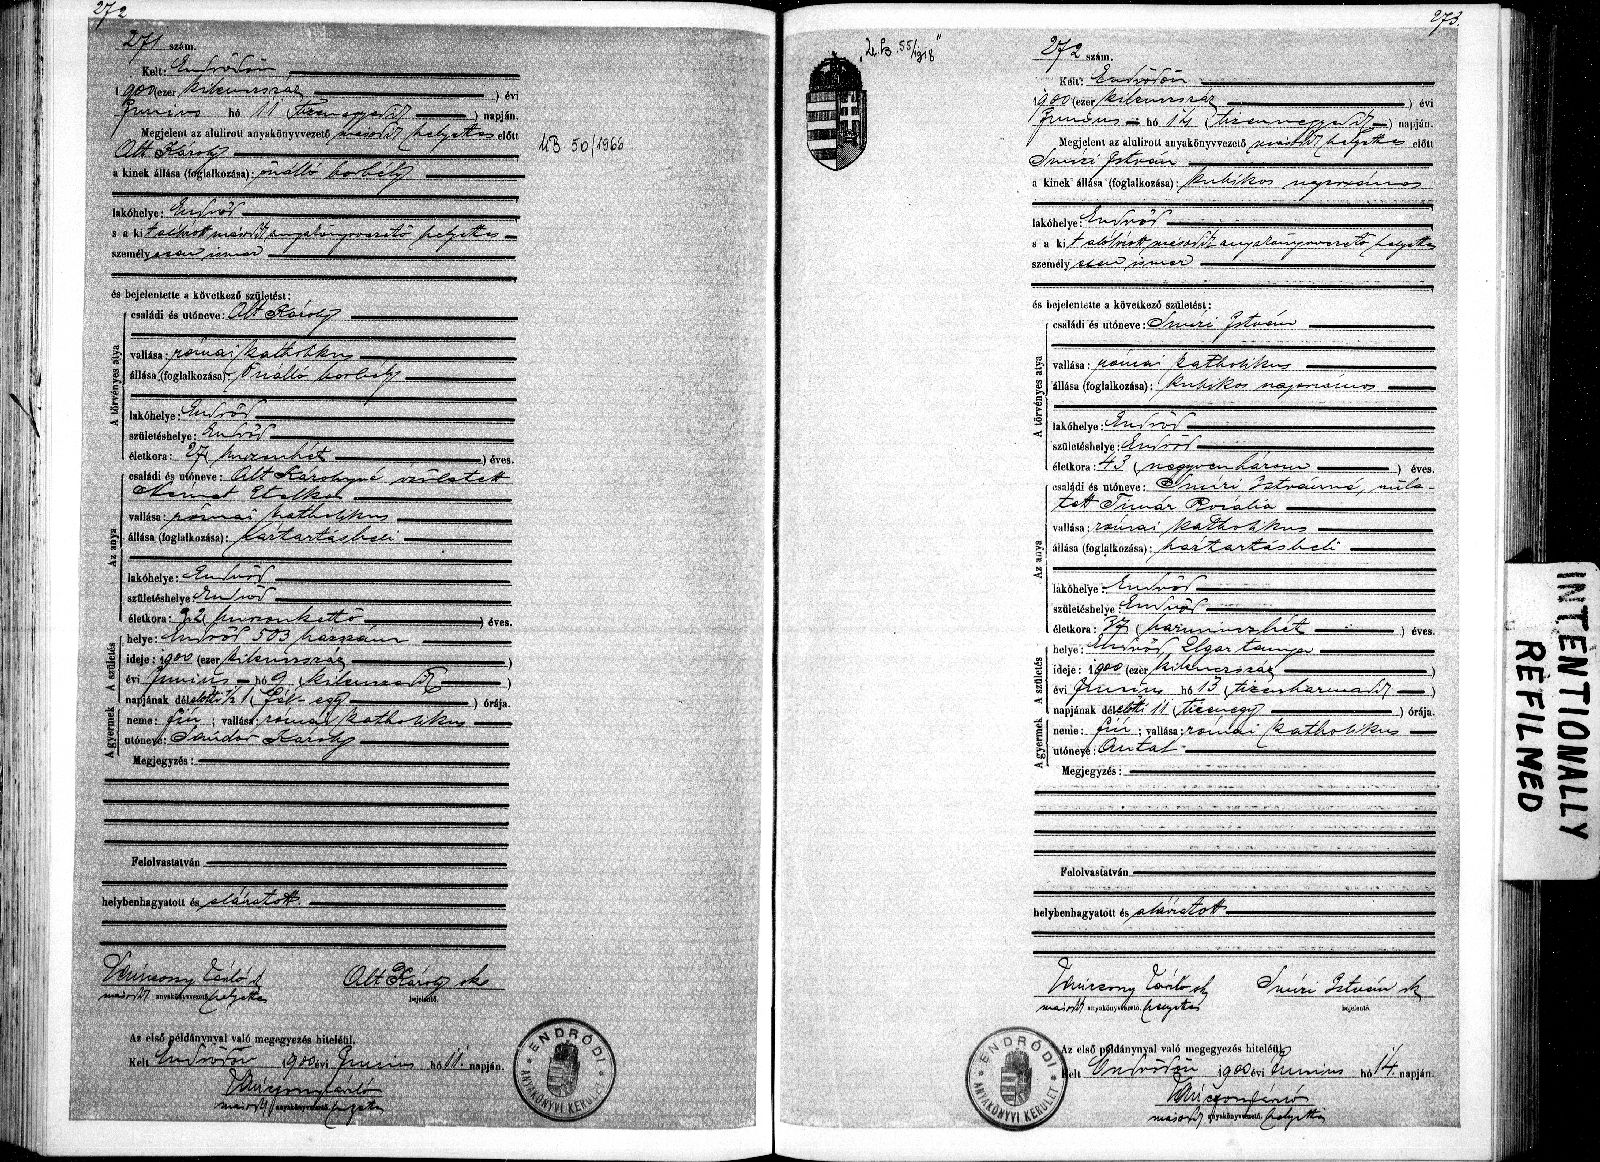 272
271 szám.
Kelt: Endrődön
1900 (ezer kilencszáz) évi
Junius hó 11 (tizenegyedik) napján.
Megjelent az alulirott anyakönyvvezető második helyettes előtt
Alt Károly
a kinek állása (foglalkozása): önálló borbély
lakóhelye: Endrőd
s a kit alulirott második anyakönyvvezető helyettes
személyesen ismer
és bejelentette a következő születést:
A törvényes atya
családi és utóneve: Alt Károly
vallása: római katholikus
állása (foglalkozása): Önálló borbély
lakóhelye: Endrőd
születéshelye: Endrőd
életkora: 27 (huszonhét) éves.
Az anya
családi és utóneve: Alt Károlyné, született
Német Etelka
vallása: római katholikus
állása (foglalkozása): háztartásbeli
lakóhelye: Endrőd
születéshelye: Endrőd
életkora: 22 (huszonkettő) éves.
A születés
helye: Endrőd 503 házszám
ideje: 1900 (ezer kilencszáz)
évi Junius hó 9 (kilencedik)
napjának délelőtti ½ 1 (fél-egy) órája.
A gyermek
neme: fiú; vallása: római katholikus
utóneve: Sándor Károly
Megjegyzés:
Felolvastatván
helybenhagyatott és aláiratott
Alt Károly sk
második anyakönyvvezető helyettes
bejelentő.
Az első példánynyal való megegyezés hiteléül.
Kelt Endrődön 1900 évi Junius hó 11. napján.
második anyakönyvvezető helyettes
ENDRŐDI ANYAKÖNYVI KERÜLET
50/1966
273.
55/1918
272 szám.
Kelt: Endrődön
1900 (ezer kilencszáz) évi
Junius hó 14 (tizennegyedik) napján.
Megjelent az alulirott anyakönyvvezető második helyettes előtt
Smiri István
a kinek állása (foglalkozása): kubikos napszámos
lakóhelye: Endrőd
s a kit alólirott második anyakönyvvezető helyettes
személyesen ismer
és bejelentette a következő születést:
A törvényes atya
családi és utóneve: Smiri István
vallása: római katholikus
állása (foglalkozása): kubikos napszámos
lakóhelye: Endrőd
születéshelye: Endrőd
életkora: 43 (negyvenhárom) éves.
Az anya
családi és utóneve: Smiri Istvánné, szüle-
tett Timár Rozália
vallása: római katholikus
állása (foglalkozása): háztartásbeli
lakóhelye: Endrőd
születéshelye: Endrőd
életkora: 37 (harminczhét) éves.
A születés
helye: Endrőd, tanya
ideje: 1900 (ezer kilencszáz)
évi Junius hó 13 (tizenharmadik)
napjának délelőtti 11 (tizenegy) órája.
A gyermek
neme: fiú; vallása: római katholikus
utóneve: Antal
Megjegyzés:
Felolvastatván
helybenhagyatott és aláiratott
Smiri István sk
második anyakönyvvezető helyettes
bejelentő.
Az első példánynyal való megegyezés hiteléül.
Kelt Endrődön 1900 évi Junius hó 14. napján.
második anyakönyvvezető helyettes
ENDRŐDI ANYAKÖNYVI KERÜLET
INTENTIONALLY
REFILMED